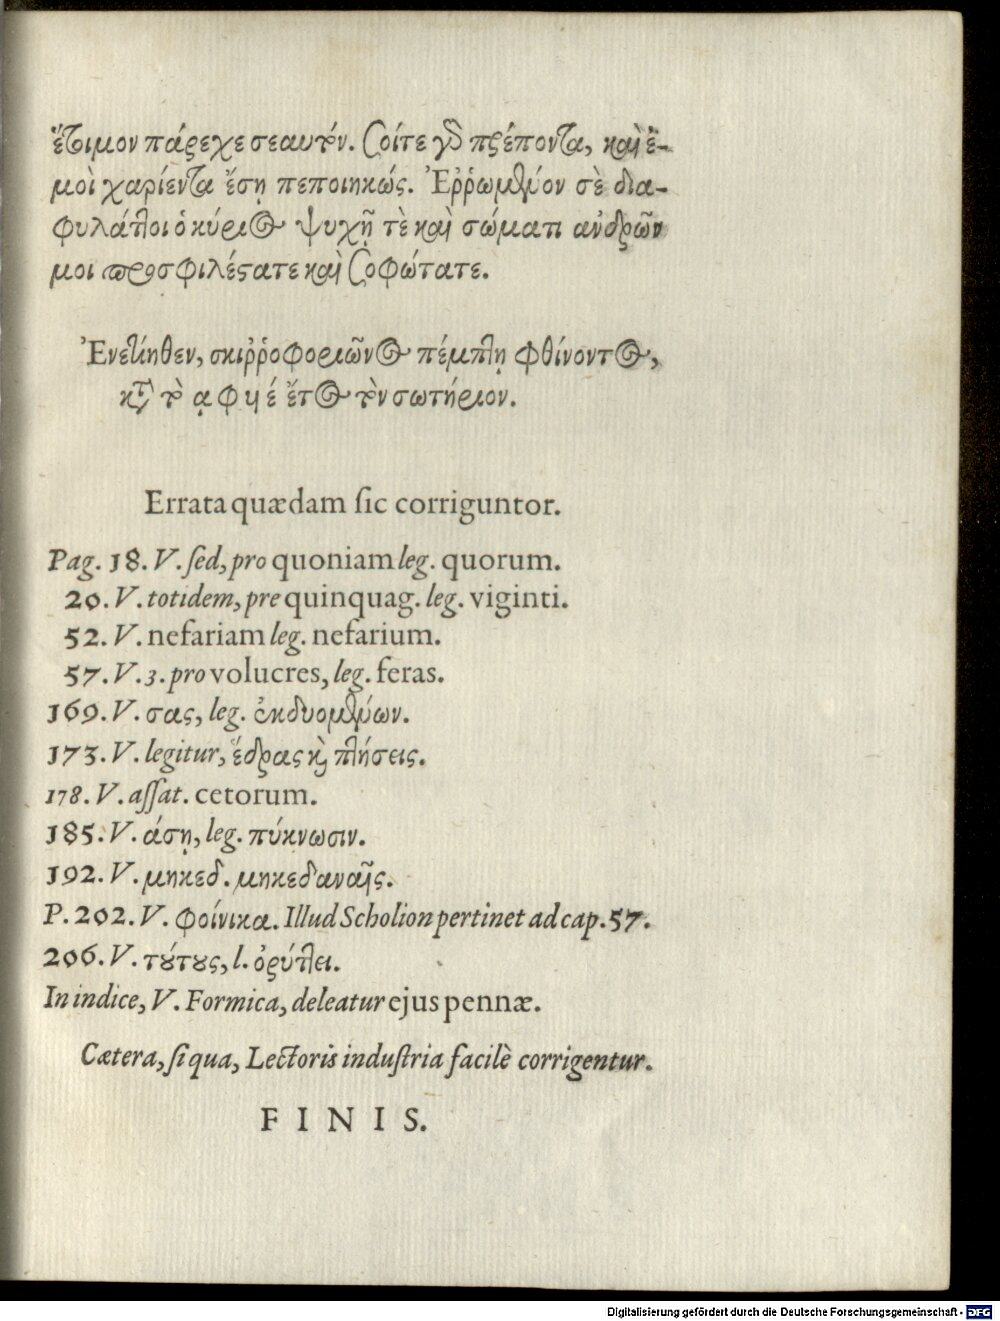 ἕτοιμον πάρεχε σεαυτόν. σοί τε γὰρ πρέποντα, καὶ ἐ-
μοὶ χαρίεντα ἔσῃ πεποιηκώς. Ἐῤῥωμένον σὲ δια-
φυλάττοι ὁ κύριος ψυχῇ τὲ καὶ σώματι ἀνδρῶν
μοι προσφιλέστατε καὶ σοφώτατε.
Ἐνετίηθεν, σκιῤῥοφοριῶνος πέμπτῃ φθίνοντος,
κατὰ τὸ ᾳφϥέ ἔτος τὸν σωτήριον.
Errata quædam ſic corriguntor.
Pag. 18. V. ſed, pro quoniam leg. quorum.
20. V. totidem, pre quinquag. leg. viginti.
52. V. nefariam leg. nefarium.
57. V. 3. pro volucres, leg. feras.
169. V. σας, leg. ἐκδυομένων.
173. V. legitur, ἕδρας καὶ πλήσεις.
178. V. aſſat. cetorum.
185. V. άση, leg. πύκνωσιν.
192. V. μηκεδ. μηκεδαναῖς.
P. 202. V. φοίνικα. Illud Scholion pertinet ad cap. 57.
206. V. τούτους, l. ὀρύττει.
In indice, V. Formica, deleatur ejus pennæ.
Cætera, ſi qua, Lectoris induſtria facilè corrigentur.
FINIS.
Digitalisierung gefördert durch die Deutsche Forschungsgemeinschaft - DFG